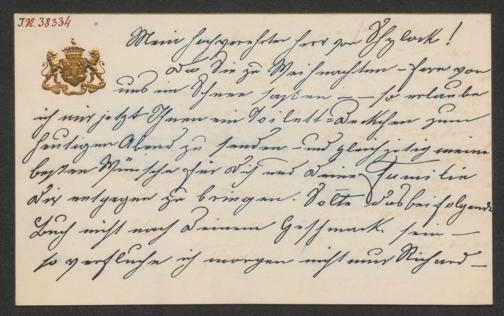 I.N. 38334
Mein hochverehrter Herr von Shylock!
Da Sie zu Weihnachten – fern von
uns im Schnee saßen — so erlaube
ich mir jetzt Ihnen ein Toilett-Deckchen zum
heutigen Abend zu senden und gleichzeitig meine
besten Wünsche für Dich und Deine Familie
Dir entgegen zu bringen. Sollte das beifolgende
Buch nicht nach Deinem Geschmack sein –
so verfluche ich morgen nicht nur Richard –